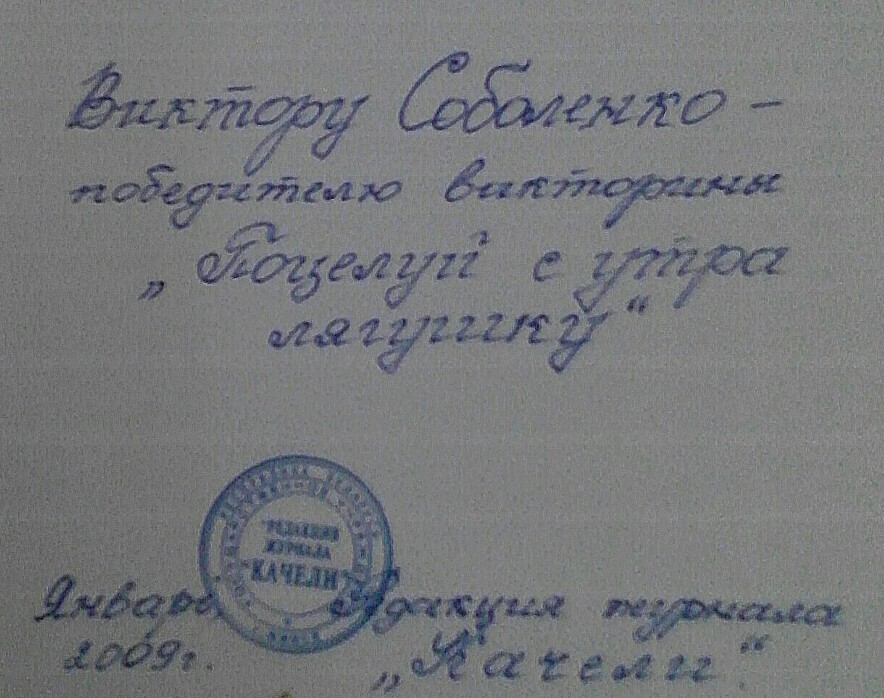 Виктору Соболенко –
победителю викторины
„Поцелуй с утра
лягушку“
РЕДАКЦИЯ
ЖУРНАЛА
"КАЧЕЛИ"
Январь,
2009г.
Редакция журнала
„Качели".